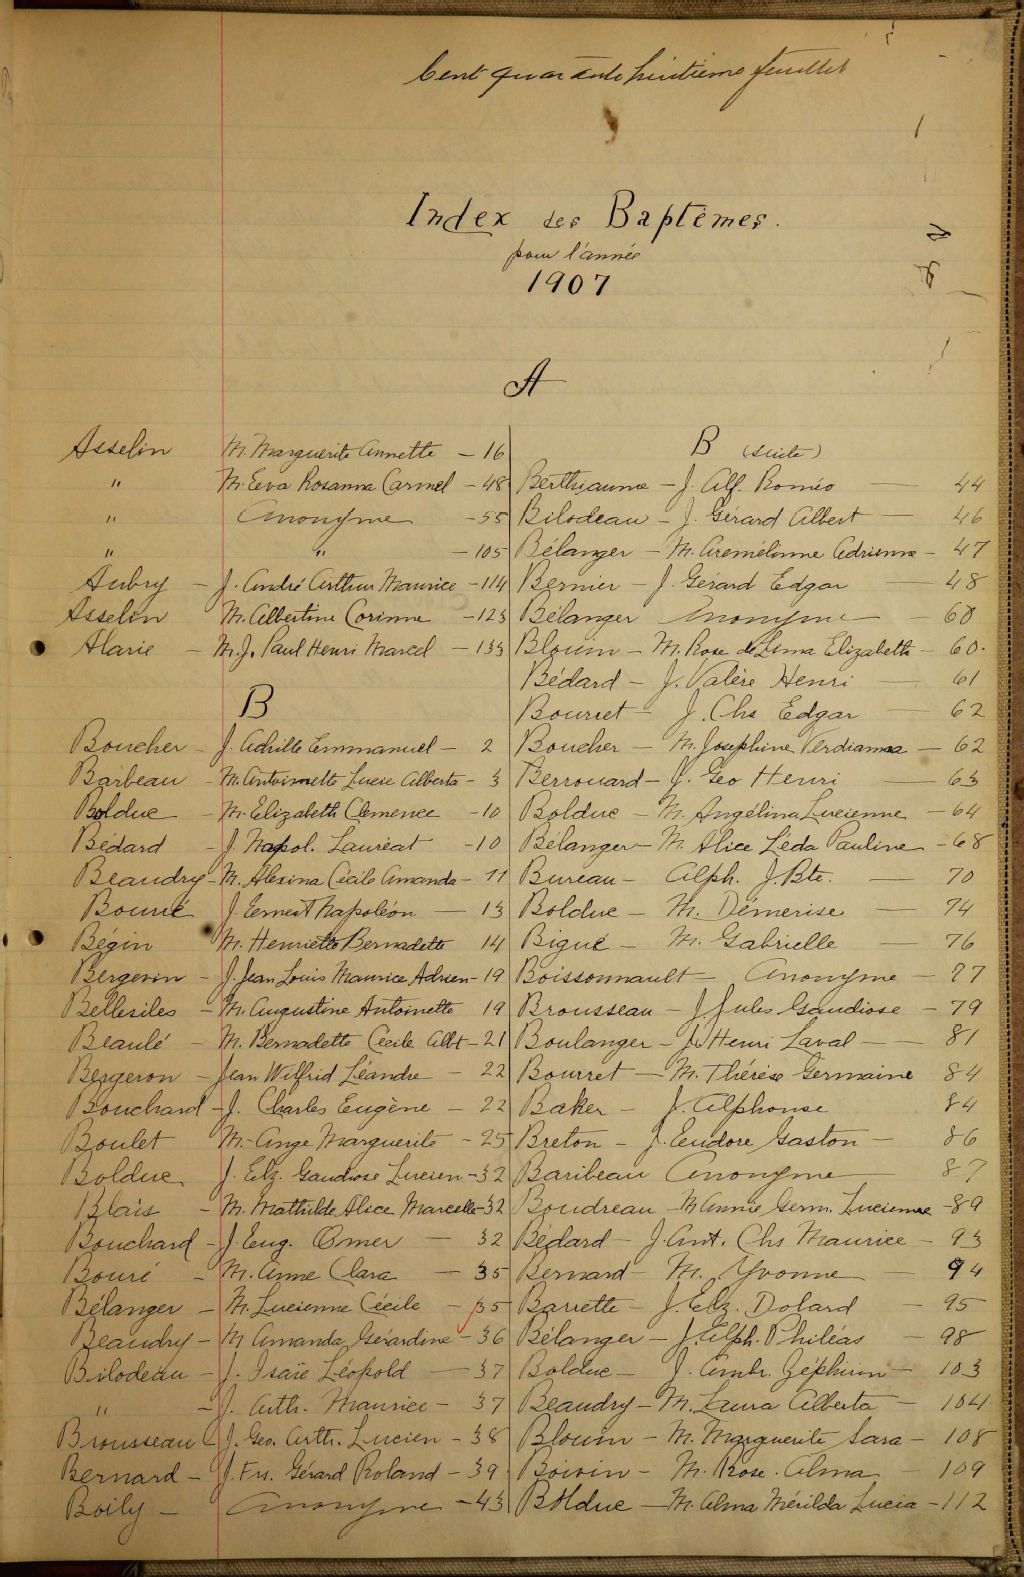 Cent quarante huitième feuillet
Index des Baptêmes.
pour l'année
1907
A
Asselin M. Marguerite Annette - 16
" M. Eva Rosanna Carmel - 48
" Anonyme - 55
" " - 105
Aubry - J. André Arthur Maurice - 114
Asselin M. Albertine Corinne - 123
Alarie - M. J. Paul Henri Marcel - 133
B
Boucher - J. Achille Emmanuel - 2
Barbeau - M. Antoinette Lucie Alberta - 3
Bolduc - M. Elizabeth Clemence - 10
Bédard - J. Napol. Lauréat - 10
Beaudry - M. Alexina Cécile Amanda - 11
Bourré J. Ernest Napoléon - 13
Bégin M. Henriette Bernadette 14
Bergevin - J. Jean Louis Maurice Adrien - 19
Bellesiles - M. Augustine Antoinette 19
Beaulé - M. Bernadette Cécile Albt - 21
Bergeron - Jean Wilfrid Léandre - 22
Bouchard - J. Charles Eugène - 22
Boulet M. Ange Marguerite - 25
Bolduc J. Elz. Gaudiose Lucien - 32
Blais - M. Mathilde Alice Marcelle - 32
Bouchard - J. Eug. Omer - 32
Bouré - M. Anne Clara - 35
Bélanger - M. Lucienne Cécile - 35
Beaudry - M Amanda Gérardine - 36
Bilodeau - J. Isaïe Léopold - 37
" - J. Arth. Maurice - 37
Brousseau - J. Geo. Arth. Lucien - 38
Bernard - J. Frs. Gérard Roland - 39
Boily - Anonyme - 43
B (suite)
Berthiaume - J. Alf. Roméo - 44
Bilodeau - J. Gérard Albert - 46
Bélanger - M. Adrienne - 47
Bernier - J. Gérard Edgar - 48
Bélanger Anonyme - 60
Blouin - M. Rose de Lima Elizabeth - 60.
Bédard - J. Valère Henri - 61
Bourret - J. Chs Edgar - 62
Boucher - M. Josephine - 62
Berrouard - J. Geo Henri - 63
Bolduc - M. Angélina Lucienne - 64
Bélanger - M. Alice Léda Pauline - 68
Bureau - Alph. J. Bte. - 70
Bolduc - M. Démerise - 74
Bigué - M. Gabrielle - 76
Boissonnault - Anonyme - 77
Brousseau - J Jules Gaudiose - 79
Boulanger - J. Henri Laval - 81
Bourret - M. Thérèse Germaine 84
Baker - J. Alphonse 84
Breton - J. Eudore Gaston - 86
Baribeau Anonyme 87
Boudreau - M Annie Germ. Lucienne - 89
Bédard - J. Ant. Chs Maurice - 93
Bernard - M. Yvonne - 94
Barrette - J. Elz. Dolard - 95
Bélanger - J. Elph. Philéas - 98
Bolduc - J. Ambr. Zéphirin - 103
Beaudry - M. Laura Alberta - 104
Blouin - M. Marguerite Sara - 108
Boivin - M. Rose. Alma - 109
Bolduc - M. Alma Mérilda Lucia - 112